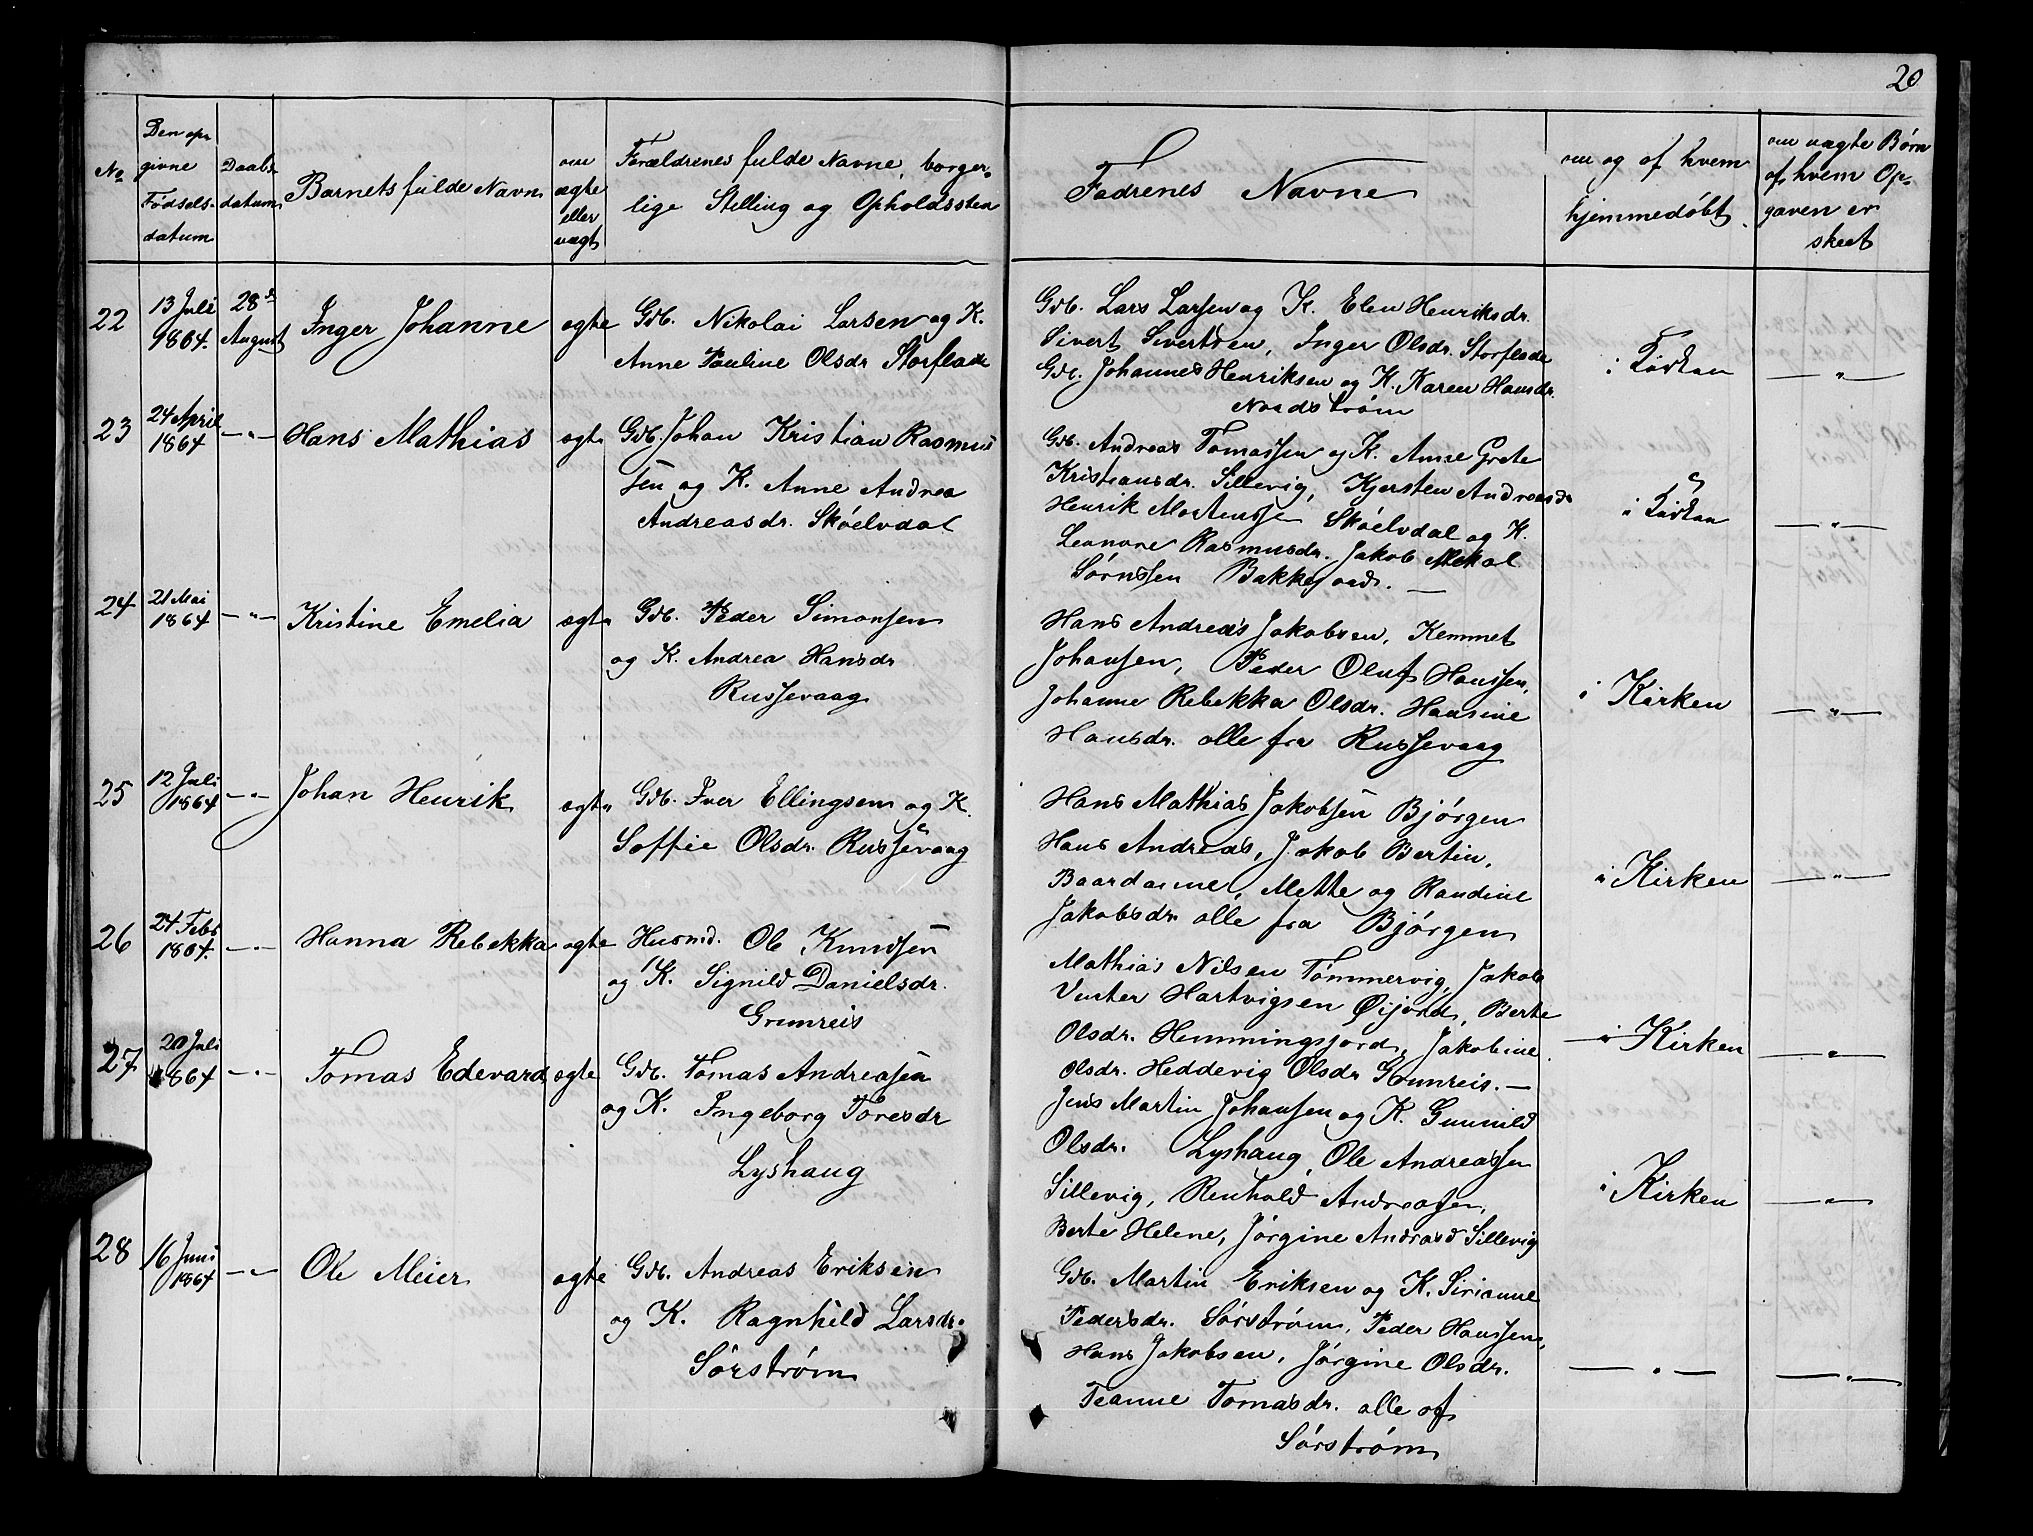 20
No
Den op-
givne
Fødsels-
datum
Daabs-
datum
Barnets fulde Navn
om
ægte
eller
uægt
Forældrenes fulde Navne, borger-
lige Stilling og Opholdssted
Fadrenes Navne
om og af hvem
hjemmedøbt
om uægte Børn
af hvem Op-
gaven er
skeet
22
13 Juli
1864.
28de
August
Inger Johanne
ægte
Gdb. Nikolai Larsen og K.
Anne Pauline Olsdr Storflade
Gdb. Lars Larsen og K. Elen Henriksdr.
Sivert Sivertsen, Inger Olsdr. Storflade
Gdb. Johannes Henriksen og K. Karen Hansdr.
Nordstrøm
i Kirken
— " —
23
24 April
1864
— " —
Hans Mathias
ægte
Gdb. Johan Kristian Rasmus
sen og K. Anne Andrea
Andreasdr. Skóelvdal
Gdb. Andreas Tomassen og K. Anne Grete
Kristiansdr. Sillevig, Kjersten Andreasdr
Henrik Mortensse Skóelvdal og K.
Leonore Rasmusdr. Jakob Mekal
Sórnssen Bakkejord. —
i Kirken
— " —
24
21 Mai
1864
— " —
Kristine Emelia
ægte
Gdb. Peder Simonsen
og K. Andrea Hansdr
Russevaag
Hans Andreas Jakobsen, Kemmet
Johansen, Peder Oluf Hanssen,
Johanne Rebekka Olsdr. Hansine
Hansdr. alle fra Russevaag
i Kirken
— " —
25
12 Juli
1864
— " —
Johan Henrik
ægte
Gdb. Iver Ellingsen og K.
Soffie Olsdr. Russevaag
Hans Mathias Jakobsen Bjórgen
Hans Andreas, Jakob Bertin,
Baardamine, Mette og Randine
Jakobsdr. alle fra Bjórgen
i Kirken
— " —
26
24 Febr
1864.
— " —
Hanna Rebekka
ægte
Husmd. Ole Knudsen
og K. Signild Danielsdr.
Grunreis
Mathias Nilsen Tómmervig, Jakob
Venter Hartvigsen Øijord, Berte
Olsdr. Hemmingsjord, Jakobine
Olsdr. Heddevig Olsdr Grunreis. —
i Kirken
— " —
27
20 Juli
1864
— " —
Tomas Edevard
ægte
Gdb. Tomas Andreasen
og K. Ingeborg Toresdr
Lyshaug
Jens Martin Johansen og K. Gunnild
Olsdr. Lyshaug, Ole Andreassen
Sillevig, Renhold Andreasen,
Berte Helene, Jórgine Andrasd Sillevig
i Kirken
— " —
28
16 Juni
1864
— " —
Ole Meier
ægte
Gdb. Andreas Eriksen
og K. Ragnhild Larsdr.
Sórstróm
Gdb. Martin Eriksen og K. Sirianne
Pedersdr. Sórstróm, Peder Hanssen,
Hans Jakobsen, Jórgine Olsdr.
Teanne Tomasdr. alle af
Sórstróm
— " —
— " —